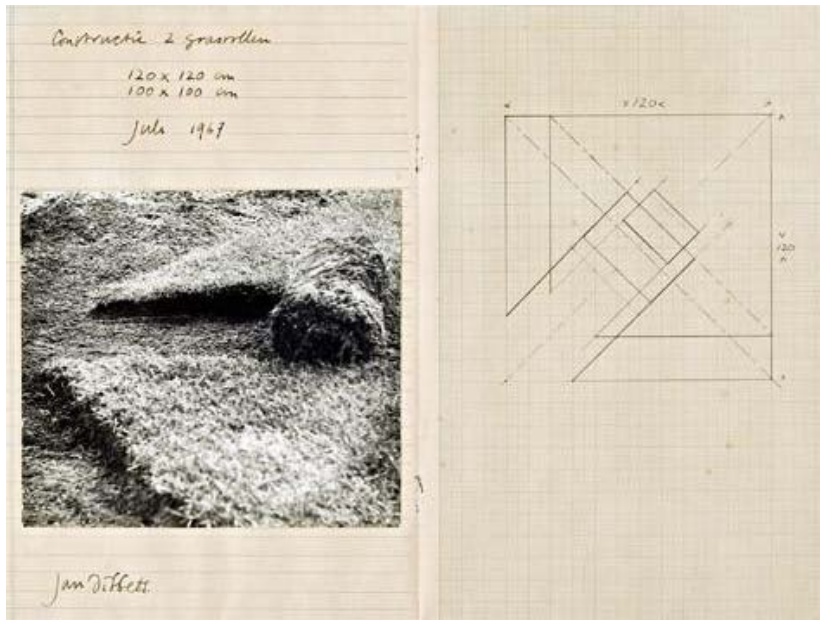 Constructie 2 grasrollen
120 x 120 cm
100 x 100 cm
Juli 1967
Jan Dibbets
120
120